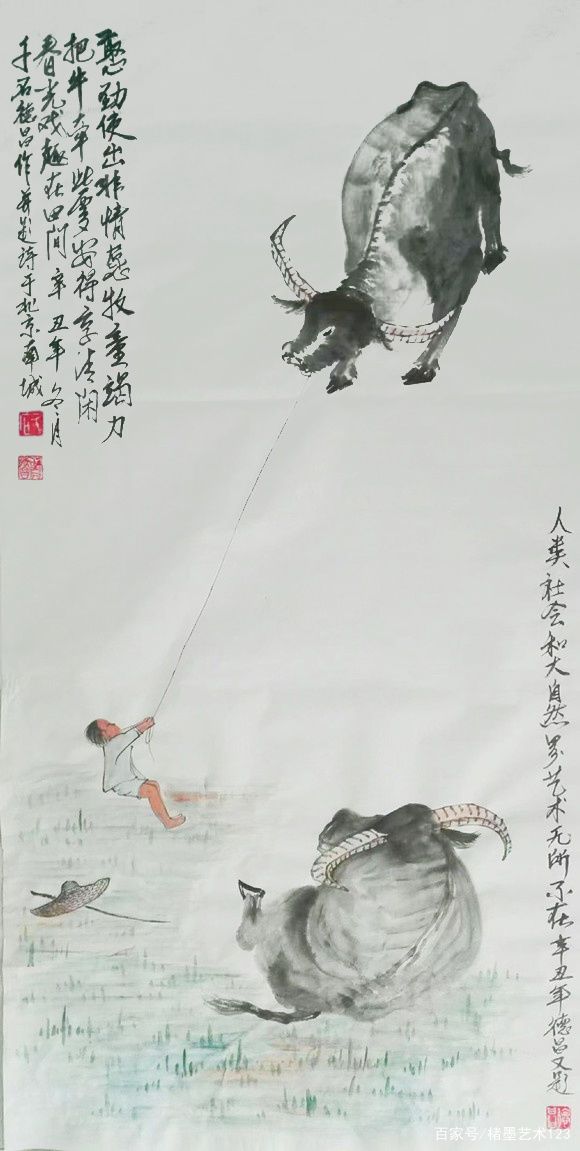 憨劲使出非情愿牧童竭力
把牛牵此处安得享清闲
春光戏趣在田间 辛丑年冬月
石德昌作并题诗于北京南城
人类社会和大自然界艺术无所不在辛丑年德昌又题
百家号/楮墨艺术123